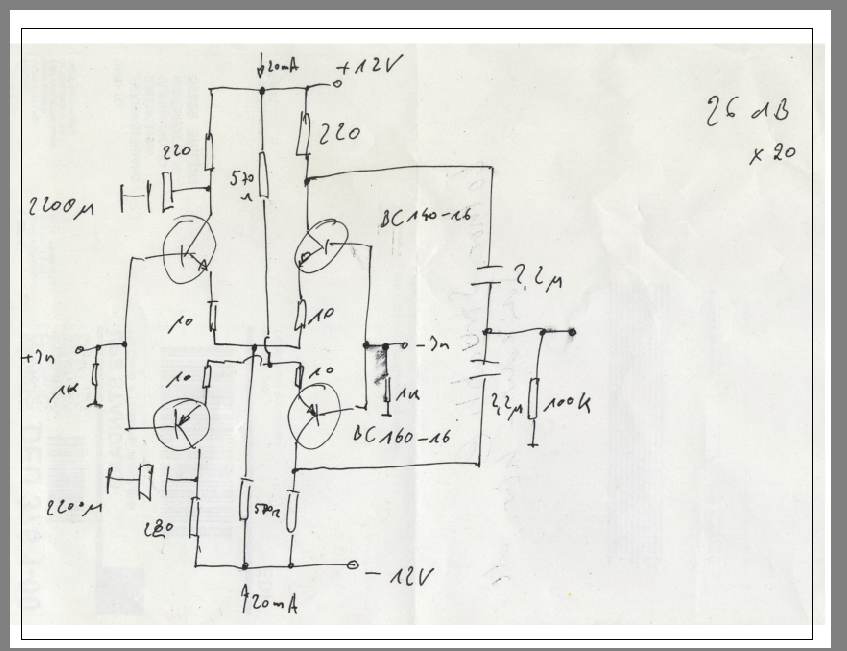 20mA
+12V
26 dB
x 20
220
220
570
2200µ
BC140-16
2,2µ
10
10
+In
-In
1K
10
10
1K
2,2µ
100K
BC160-16
2200µ
220
570
-12V
20mA